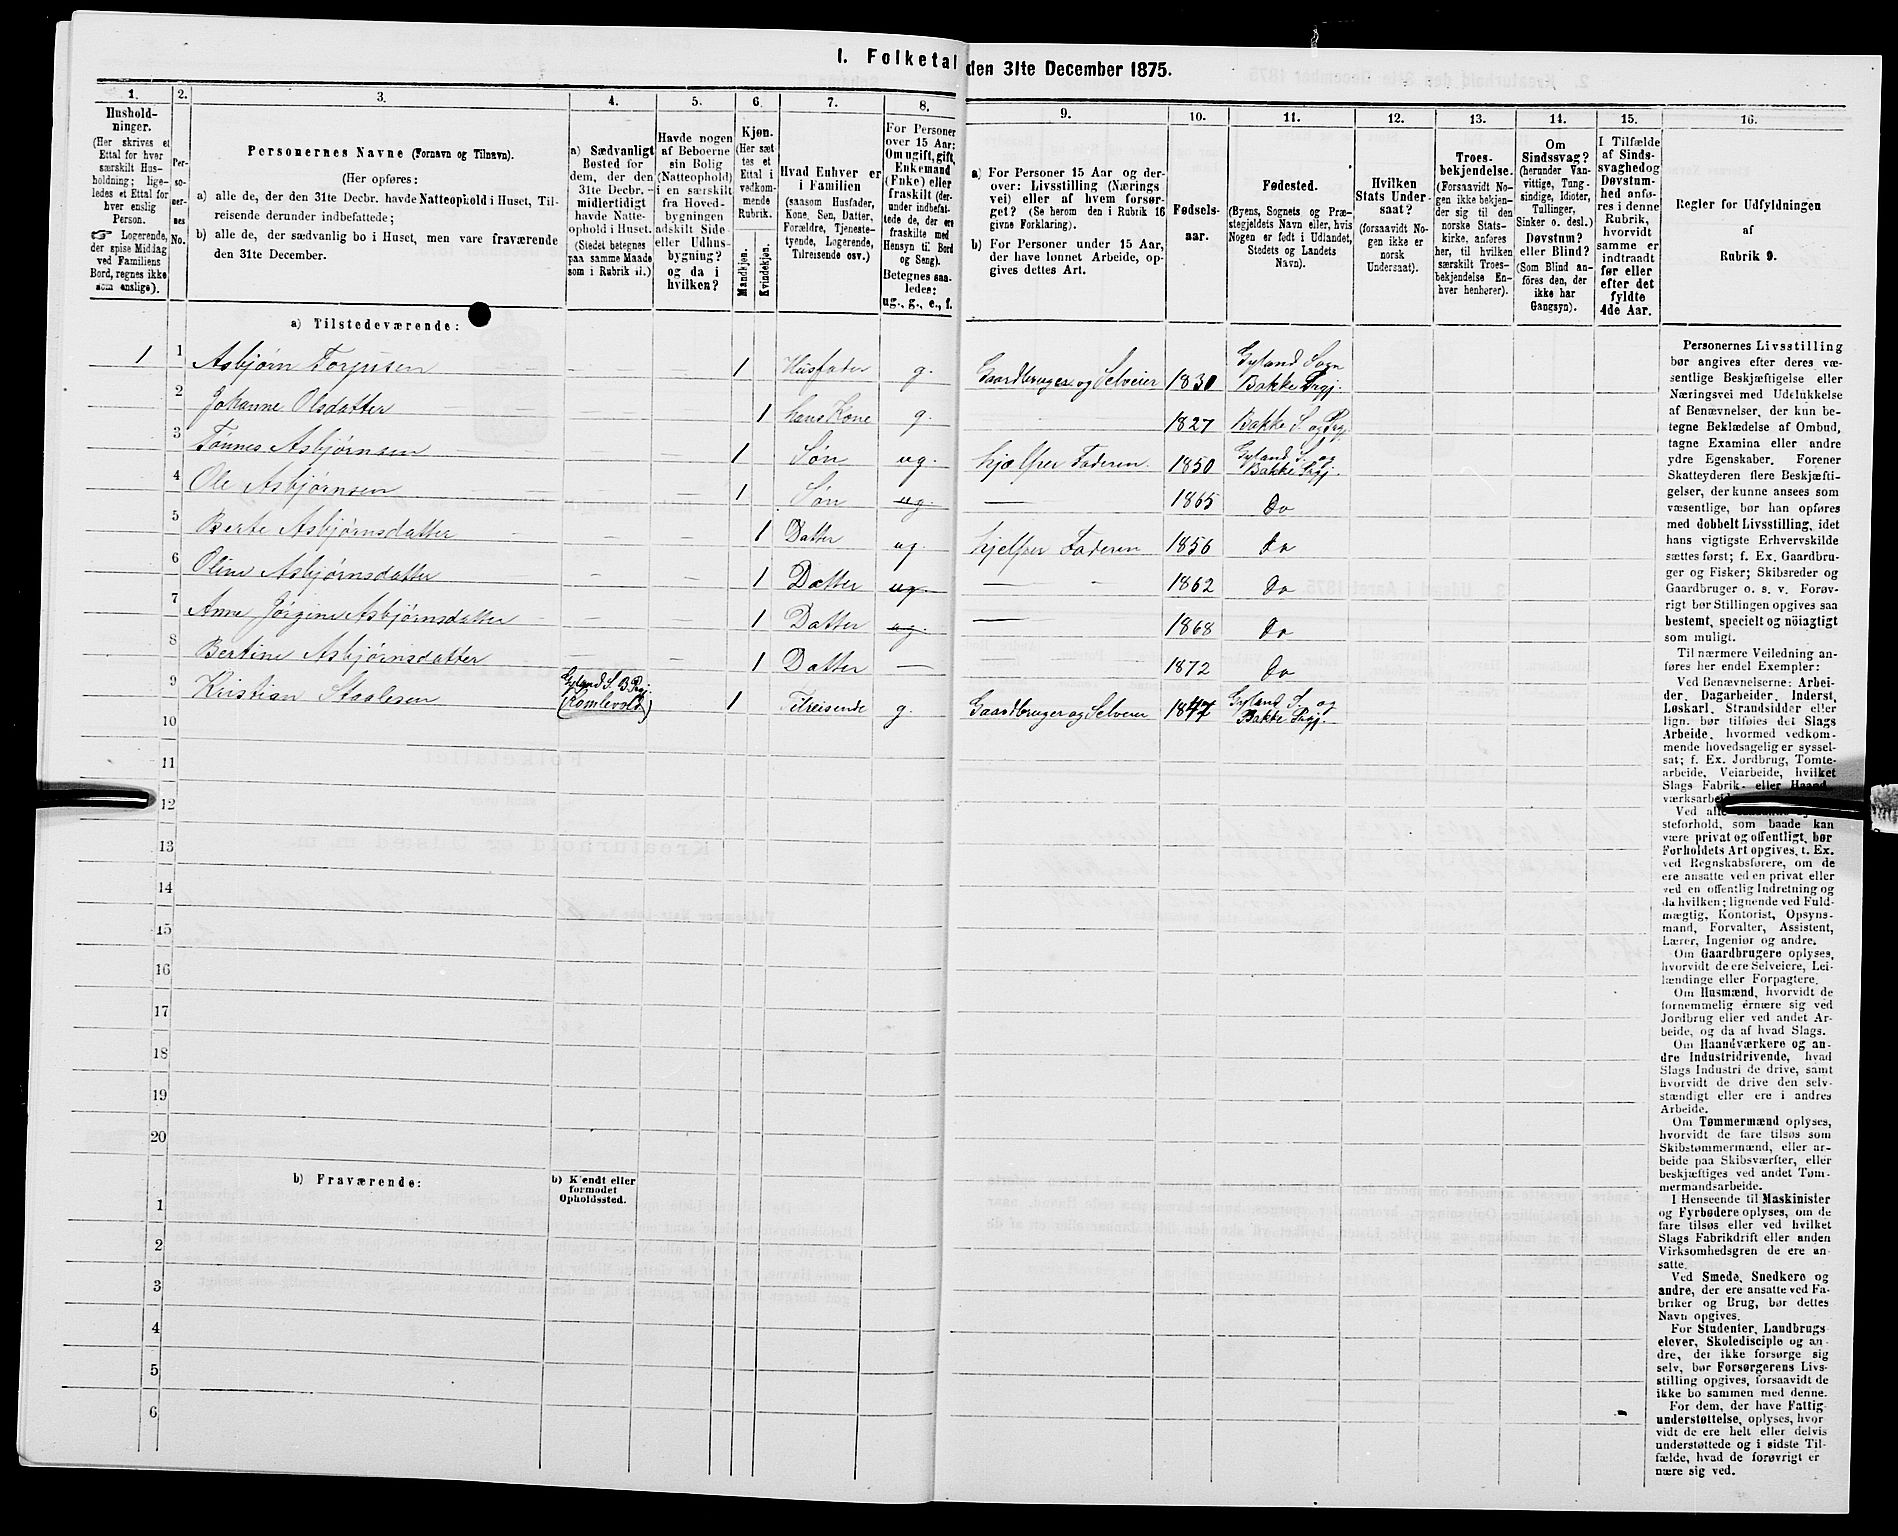 I. Folketal den 31te December 1875.
1. 2. 3. 4. 5. 6. 7. 8. 9. 10. 11. 12. 13. 14. 15. 16.
Hushold-
ninger.
(Her skrives et
Ettal for hver
særskilt Hus-
holdning; lige-
ledes et Ettal for
hver enslig
Person.
☞ Logerende,
der spise Middag
ved Familiens
Bord, regnes ikke
som enslige).
Per-
so-
ner-
nes
No.
Personernes Navne (Fornavn og Tilnavn).
(Her opføres:
a) alle de, der den 31te Decbr. havde Natteophold i Huset, Til-
reisende derunder indbefattede;
b) alle de, der sædvanlig bo i Huset, men vare fraværende
den 31te December.
a) Sædvanligt
Bosted for
dem, der den
31te Decbr.
midlertidigt
havde Natte-
ophold i Huset.
(Stedet betegnes
paa samme Maade
som i Rubrik 11.)
Havde nogen
af Beboerne
sin Bolig
(Natteophold)
i en særskilt
fra Hoved-
bygningen
adskilt Side-
eller Udhus-
bygning?
og da i
hvilken?
Kjøn.
(Her sæt-
tes et
Ettal i
vedkom-
mende
Rubrik.
Mandkjøn.
Kvindekjøn.
Hvad Enhver er
i Familien
(saasom Husfader,
Kone, Søn, Datter,
Forældre, Tjeneste-
tyende, Logerende,
Tilreisende osv.)
For Personer
over 15 Aar:
Om ugift, gift,
Enkemand
(Enke) eller
fraskilt (der-
under indbefat-
tede de, der ere
fraskilte med
Hensyn til Bord
og Seng).
Betegnes saa-
ledes:
ug., g., e., f.
a) For Personer 15 Aar og der-
over: Livsstilling (Nærings
vei) eller af hvem forsør-
get? (Se herom den i Rubrik 16
givne Forklaring).
b) For Personer under 15 Aar,
der have lønnet Arbeide, op-
gives dettes Art.
Fødsels-
aar.
Fødested.
(Byens, Sognets og Præ-
stegjeldets Navn eller, hvis
Nogen er født i Udlandet,
Stedets og Landets
Navn).
Hvilken
Stats Under-
saat?
(forsaavidt No-
gen ikke er
norsk
Undersaat).
Troes-
bekjendelse.
(Forsaavidt No-
gen ikke bekjen-
der sig til den
norske Stats-
kirke, anføres
her, til hvilken
særskilt Troes-
bekjendelse En-
hver henhører).
Om
Sindssvag?
(herunder Van-
vittige, Tung-
sindige, Idioter,
Tullinger,
Sinker o. desl.)
Døvstum?
eller Blind?
(Som Blind an-
føres den, der
ikke har
Gangsyn).
I Tilfælde
af Sinds-
svaghed og
Døvstum-
hed anfø-
res i denne
Rubrik,
hvorvidt
samme er
indtraadt
før eller
efter det
fyldte
4de Aar.
Regler for Udfyldningen
af
Rubrik 9.
a) Tilstedeværende:
1 1 Asbjørn Torjusen 1 Husfader g. Gaardbruger og Selveier 1830 Gyland Sogn Bakke Prgj.
2 Johanne Olsdatter 1 hans Kone g. 1827 Bakke S. og Prgj.
3 Tønnes Asbjørnsen 1 Søn ug. hjælper Faderen 1850 Gyland S. og Bakke Prgj.
4 Ole Asbjørnsen 1 Søn ug. 1865 Do
5 Berte Asbjørnsdatter 1 Datter ug. hjelper Faderen 1856 Do
6 Oline Asbjørnsdatter 1 Datter ug. 1862 Do
7 Anne Jørgine Asbjørnsdatter 1 Datter ug. 1868 Do
8 Bertine Asbjørnsdatter 1 Datter 1872 Do
9 Kristian Staalesen Gyland S. B. Prgj. 1 Tilreisende g. Gaardbruger og Selveier Gyland S. og Bakke Prgj.
10
11
12
13
14
15
16
17
18
19
20
b) Fraværende:
b) Kjendt eller
formodet
Opholdssted.
1
2
3
4
5
6
Personernes Livsstilling
bør angives efter deres væ-
sentlige Beskjæftigelse eller
Næringsvei med Udelukkelse
af Benævnelser, der kun be-
tegne Beklædelse af Ombud,
tagne Examina eller andre
ydre Egenskaber. Forener
Skatteyderen flere Beskjæfti-
gelser, der kunne ansees som
væsentlige, bør han opføres
med dobbelt Livsstilling, idet
hans vigtigste Erhvervskilde
sættes først; f. Ex. Gaardbru-
ger og Fisker; Skibsreder og
Gaardbruger o. s. v. Forøv-
rigt bør Stillingen opgives saa
bestemt, specielt og nöiagtigt
som muligt.
Til nærmere Veiledning an-
føres her endel Exempler:
Ved Benævnelserne: Arbei-
der, Dagarbeider, Inderst,
Løskarl, Strandsidder eller
lign. bør tilføies det Slags
Arbeide, hvormed vedkom-
mende hovedsagelig er syssel-
sat; f. Ex. Jordbrug, Tomte-
arbeide, Veiarbeide, hvilket
Slags Fabrik- eller Haand-
værksarbei
Ved alle
steforhold, som baade kan
være privat og offentligt, bør
Forholdets Art opgives, t. Ex.
ved Regnskabsførere, om de
ere ansatte ved en privat eller
ved en offentlig Indretning og
da hvilken; lignende ved Fuld-
mægtig, Kontorist, Opsyns-
mand, Forvalter, Assistent,
Lærer, Ingeniør og andre.
Om Gaardbrugere oplyses,
hvorvidt de ere Selveiere, Lei-
lændinge eller Forpagtere.
Om Husmænd, hvorvidt de
fornemmelig ernære sig ved
Jordbrug eller ved andet Ar-
beide, og da af hvad Slags.
Om Haandværkere og an-
dre Industridrivende, hvad
Slags Industri de drive, samt
hvorvidt de drive den selv-
stændigt eller ere i andres
Arbeide.
Om Tømmermænd oplyses,
hvorvidt de fare tilsøs som
Skibstømmermænd, eller ar-
beide paa Skibsværfter, eller
beskjæftiges ved andet Tøm-
mermandsarbeide.
I Henseende til Maskinister
og Fyrbødere oplyses, om de
fare tilsøs eller ved hvilket
Slags Fabrikdrift eller anden
Virksomhedsgren de ere an-
satte.
Ved Smede, Snedkere og
andre, der ere ansatte ved Fa-
briker og Brug, bør dettes
Navn opgives.
For Studenter, Landbrugs-
elever, Skoledisciple og an-
dre, der ikke forsørge sig
selv, bør Forsørgerens Livs-
stilling opgives, forsaavidt de
ikke bo sammen med denne.
For dem, der have Fattig-
understøttelse, oplyses, hvor
vidt de ere helt eller delvis
understøttede og i sidste Til-
fælde, hvad de forøvrigt er
nære sig ved.